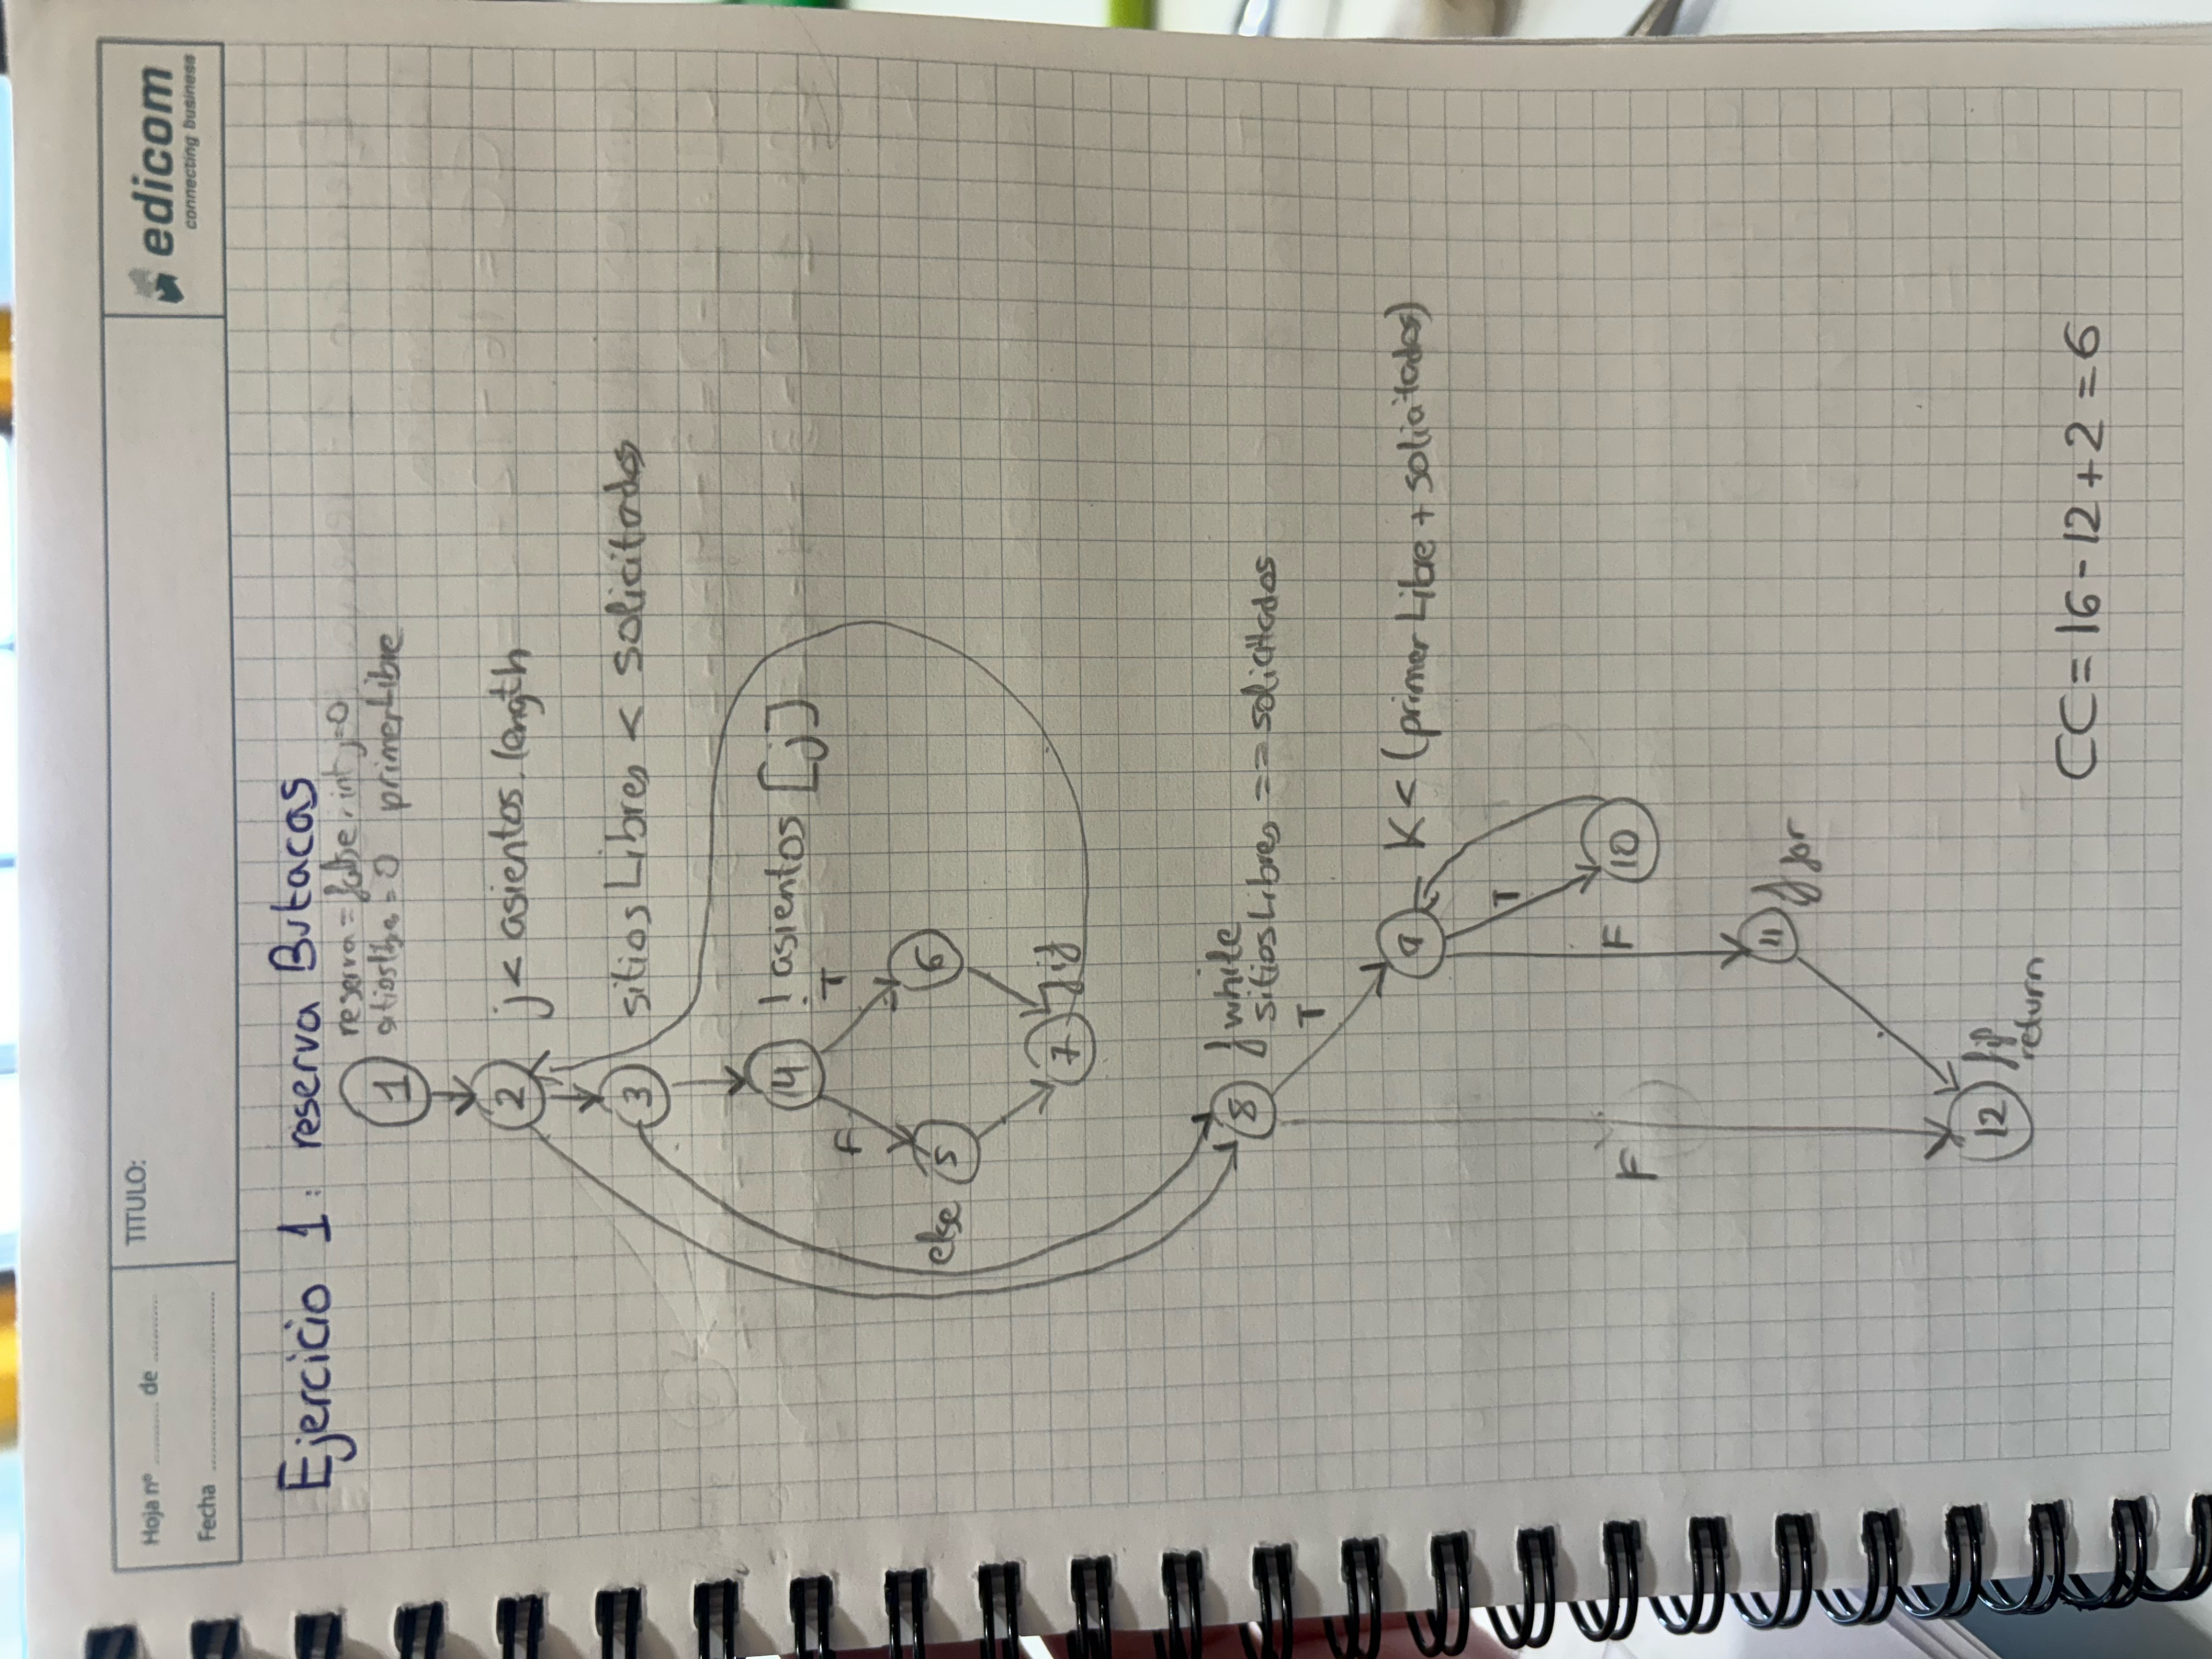 Hoja nº ............ de ............
TITULO:
Fecha ............
edicom
connecting business
Ejercicio 1: reserva Butacas
reserva = false, int j=0
1
sitiosLibres = 0 primerLibre
2 j < asientos.length
3 sitiosLibres < solicitados
14 ! asientos [j]
F T
else 5 6
7 fif
8 fwhile
sitiosLibres == solicitados
T
9 K < (primerLibre + solicitados)
T
F F 10
11 ffor
12 fif
return
CC = 16 - 12 + 2 = 6